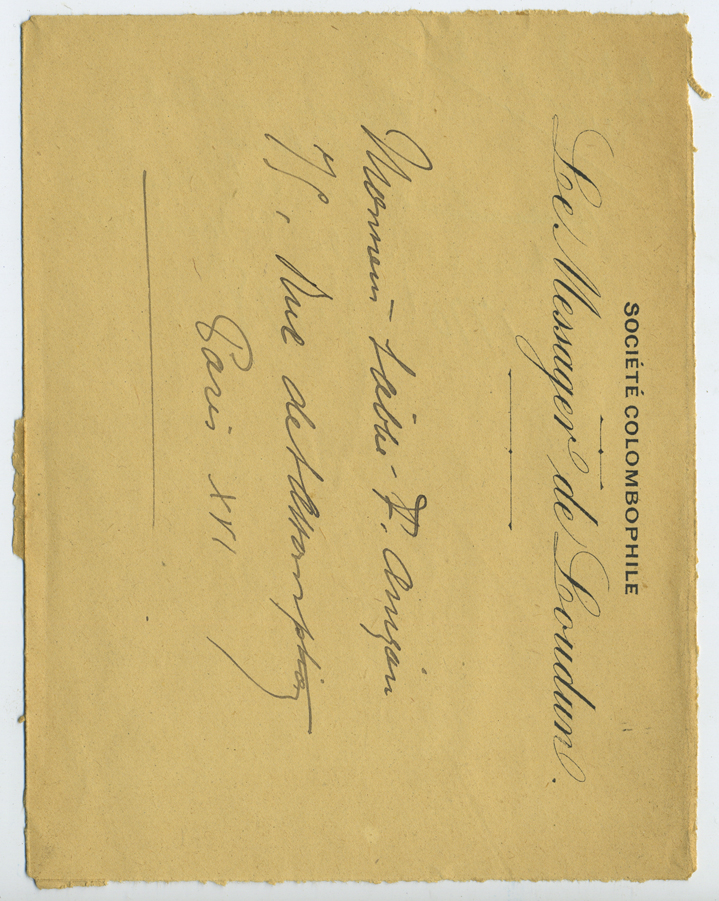 SOCIÉTÉ COLOMBOPHILE
Le Messager de Loudun.
Monsieur L'abbé F. Anizan
75, Rue de L'Assomption
Paris XVI